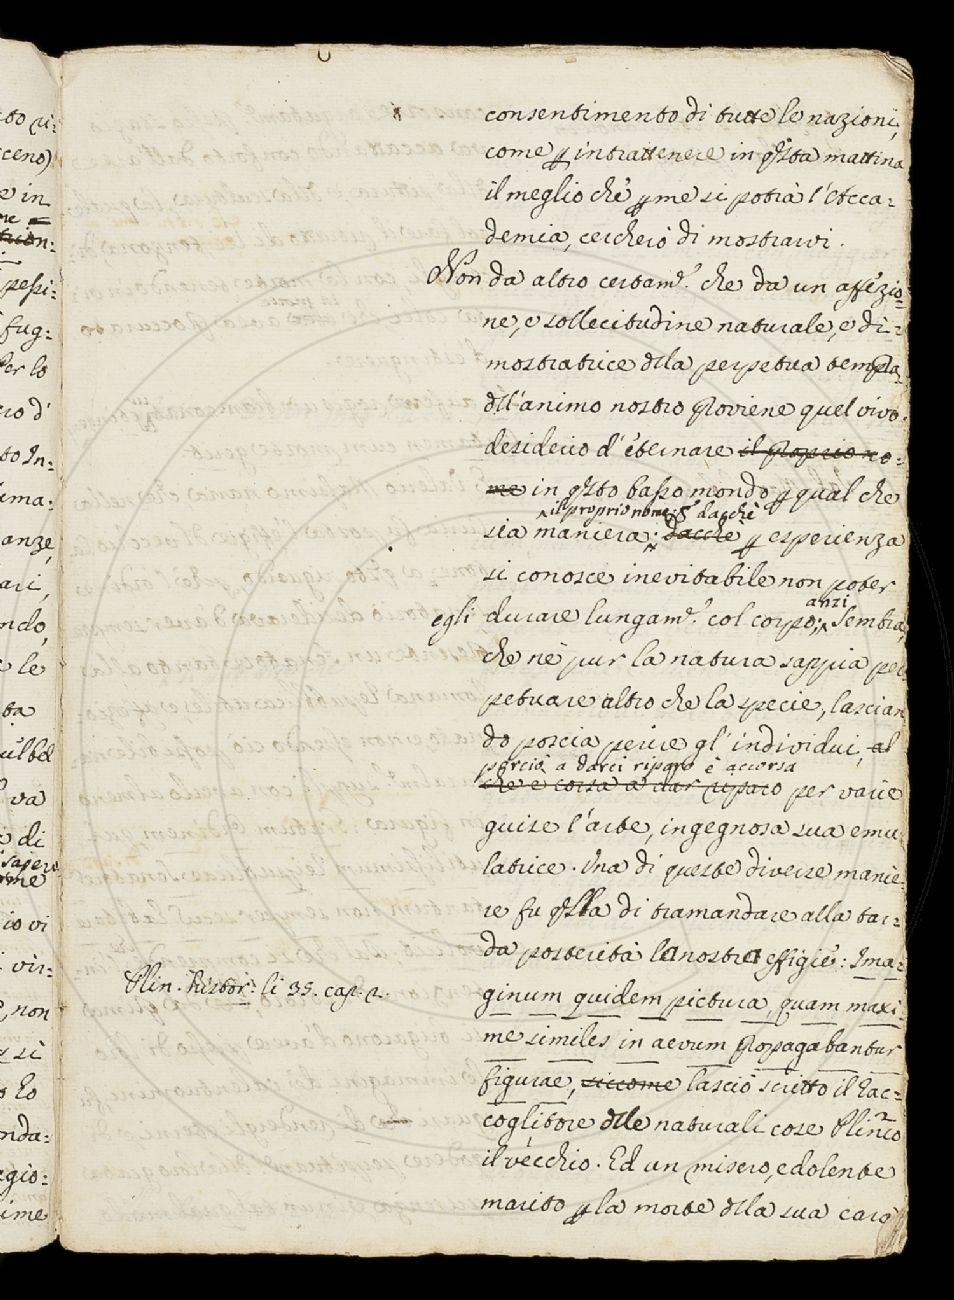 consentimento di tutte le nazioni,
come p intrattenere in qsta mattina
il meglio che p me si potrà l'Acca-
demia, cercherò di mostrarvi.
Non da altro certam.e che da un affezio-
ne, e sollecitudine naturale, e di-
mostratrice dlla perpetua tempra
dll'animo nostro proviene quel vivo
desiderio d'eternare il proprio no-
me in qsto basso mondo p qual che
il proprio nome: E dacchè
sia maniera: dacche p esperienza
si conosce inevitabile non poter
anzi
egli durare lungam.e col corpo; Sembra,
che nè pur la natura sappia per
petuare altro che la specie, lascian
do poscia perire gl'individui, al
perciò a darci riparo è accorsa
che è corsa a dar riparo per varie
guise l'arte, ingegnosa sua emu
latrice. Una di queste diverse manie-
re fu qlla di tramandare alla tar-
da posterità la nostra effigie: Ima-
Plin. histor: li 35. cap. 2.
ginum quidem pictura, quam maxi
me similes in aevum propagabantur
figurae, siccome lasciò scritto il Rac-
coglitore dlle naturali cose Plinio
il vecchio. Ed un misero, e dolente
marito p la morte dlla sua cara